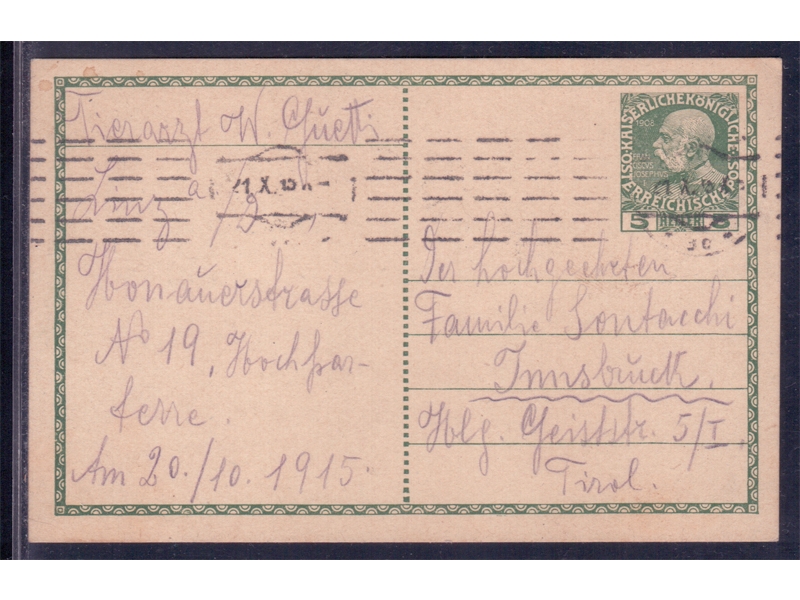 Tierarzt W. Guetti
Linz a/D.,
Honauerstrasse
No 19, Hochpar-
terre.
Am 20./10. 1915.
21.X.15
KAISERLICHE KÖNIGLICHE
ÖSTERREICHISCHE POST
1908
FRANCISCUS
JOSEPHUS I
5 HELLER 5
Der hochgeehrten
Familie Sontacchi
Innsbruck.
Hlg. Geiststr. 5/I
Tirol.